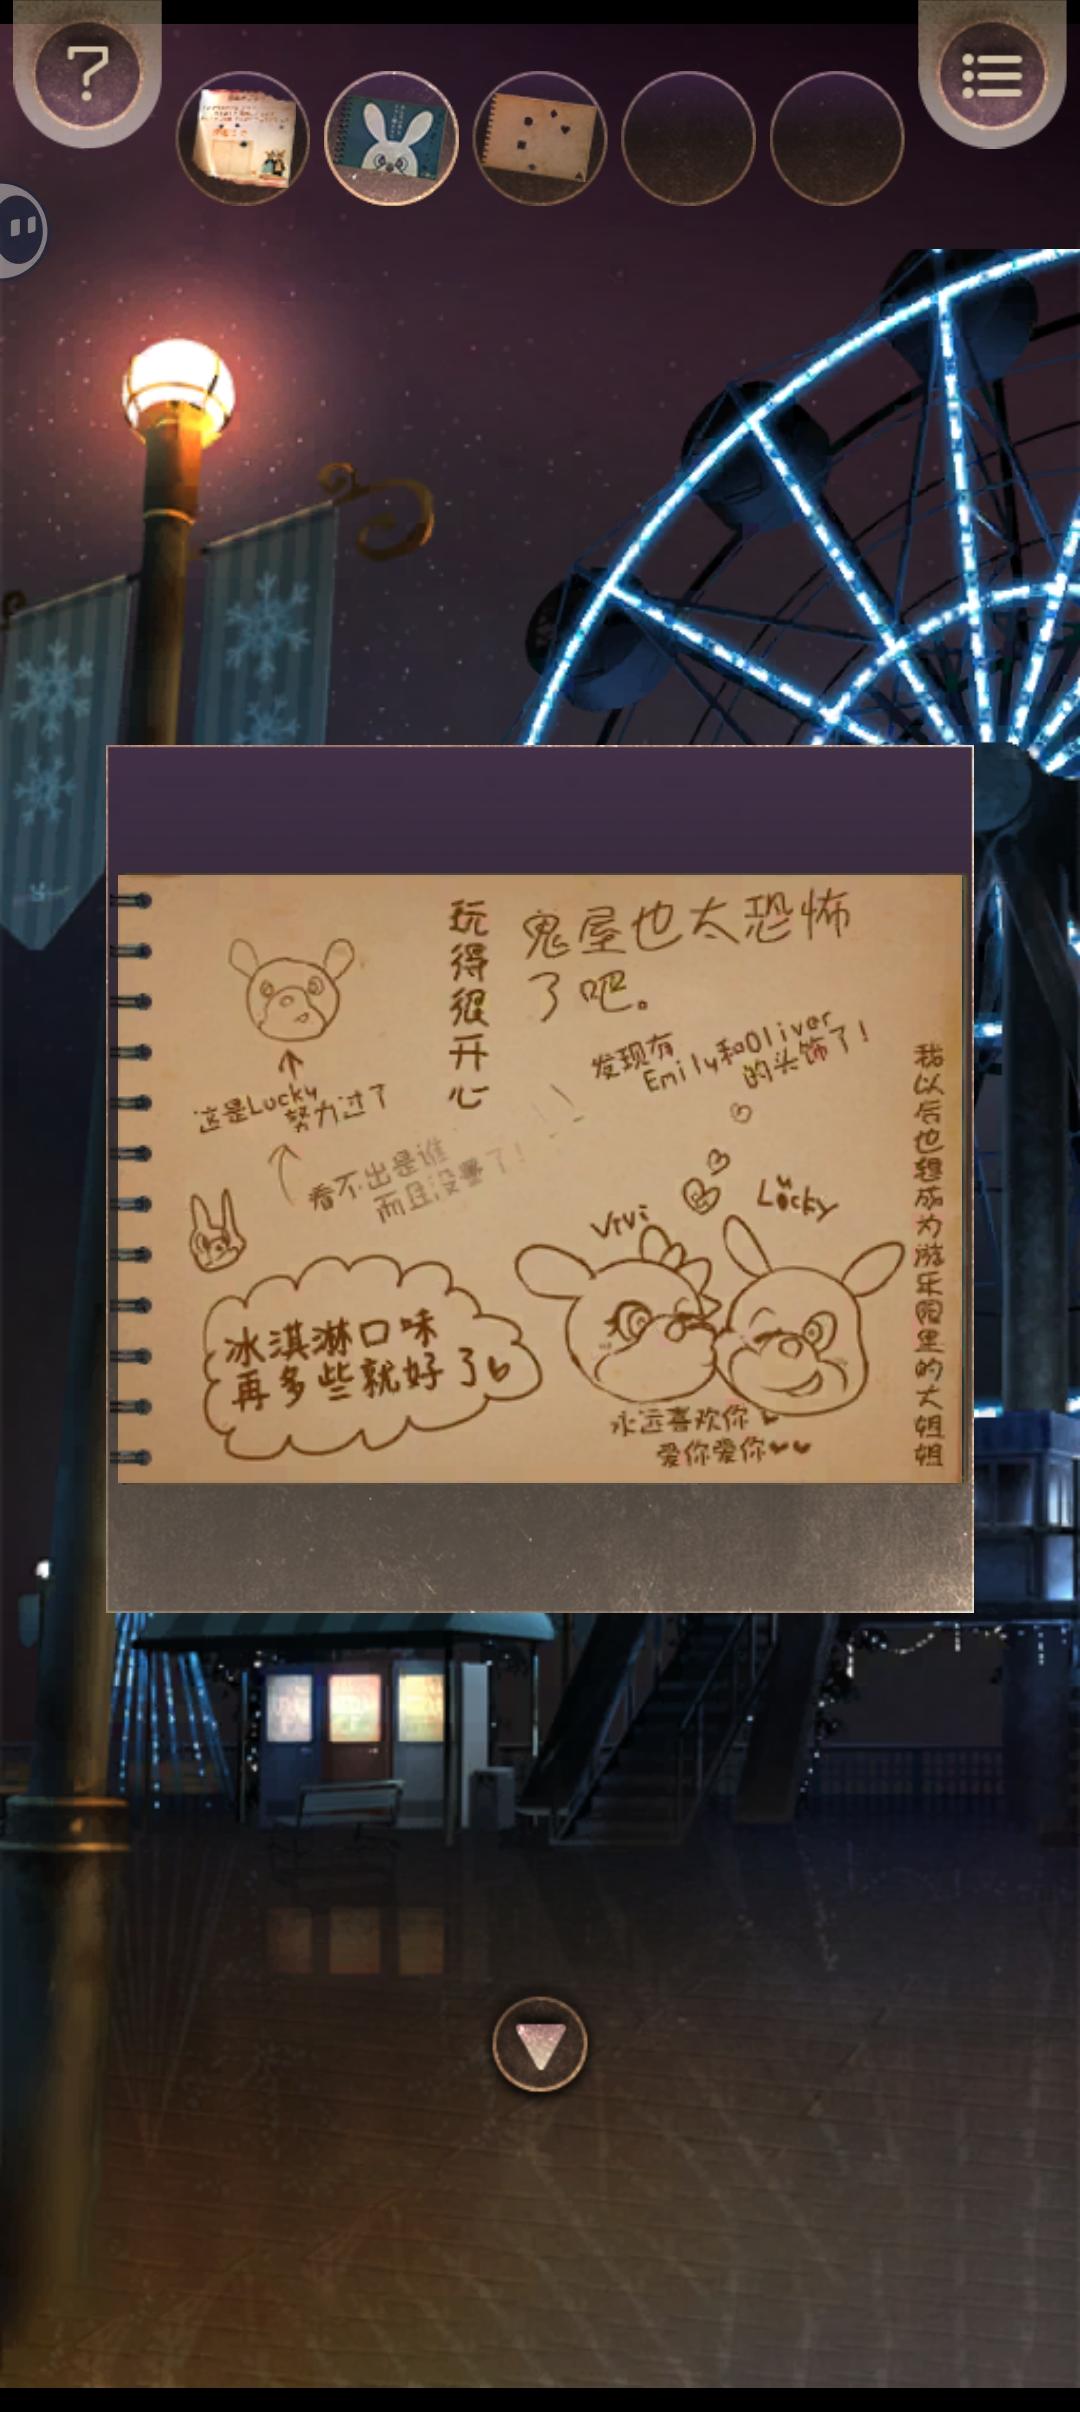 玩得很开心
鬼屋也太恐怖
了吧。
发现有
Emily和Oliver
的头饰了！
我以后也想成为游乐园里的大姐姐
这是Lucky
努力过了
看不出是谁
而且没画了！
Vivi
Lucky
冰淇淋口味
再多些就好了
永远喜欢你
爱你爱你